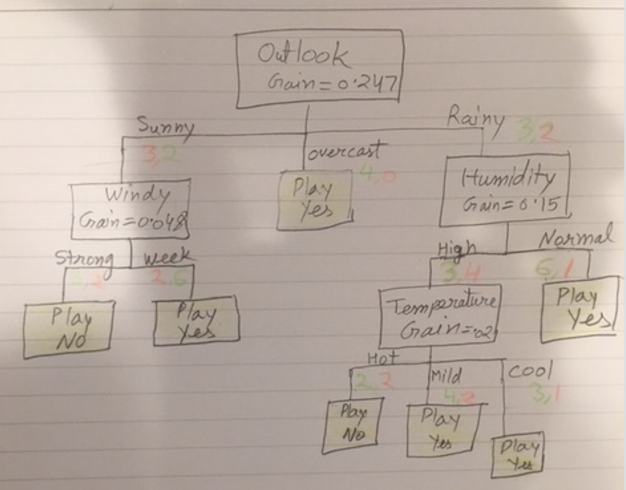 Outlook
Gain=0.247
Sunny
3,2
overcast
4,0
Rainy
3,2
Windy
Gain=0.048
Play
Yes
Humidity
Gain=0.15
Strong
Week
2,6
High
3,4
Normal
6,1
Play
No
Play
Yes
Temperature
Gain=.02
Play
Yes
Hot
2,2
Mild
4,2
Cool
3,1
Play
No
Play
Yes
Play
Yes